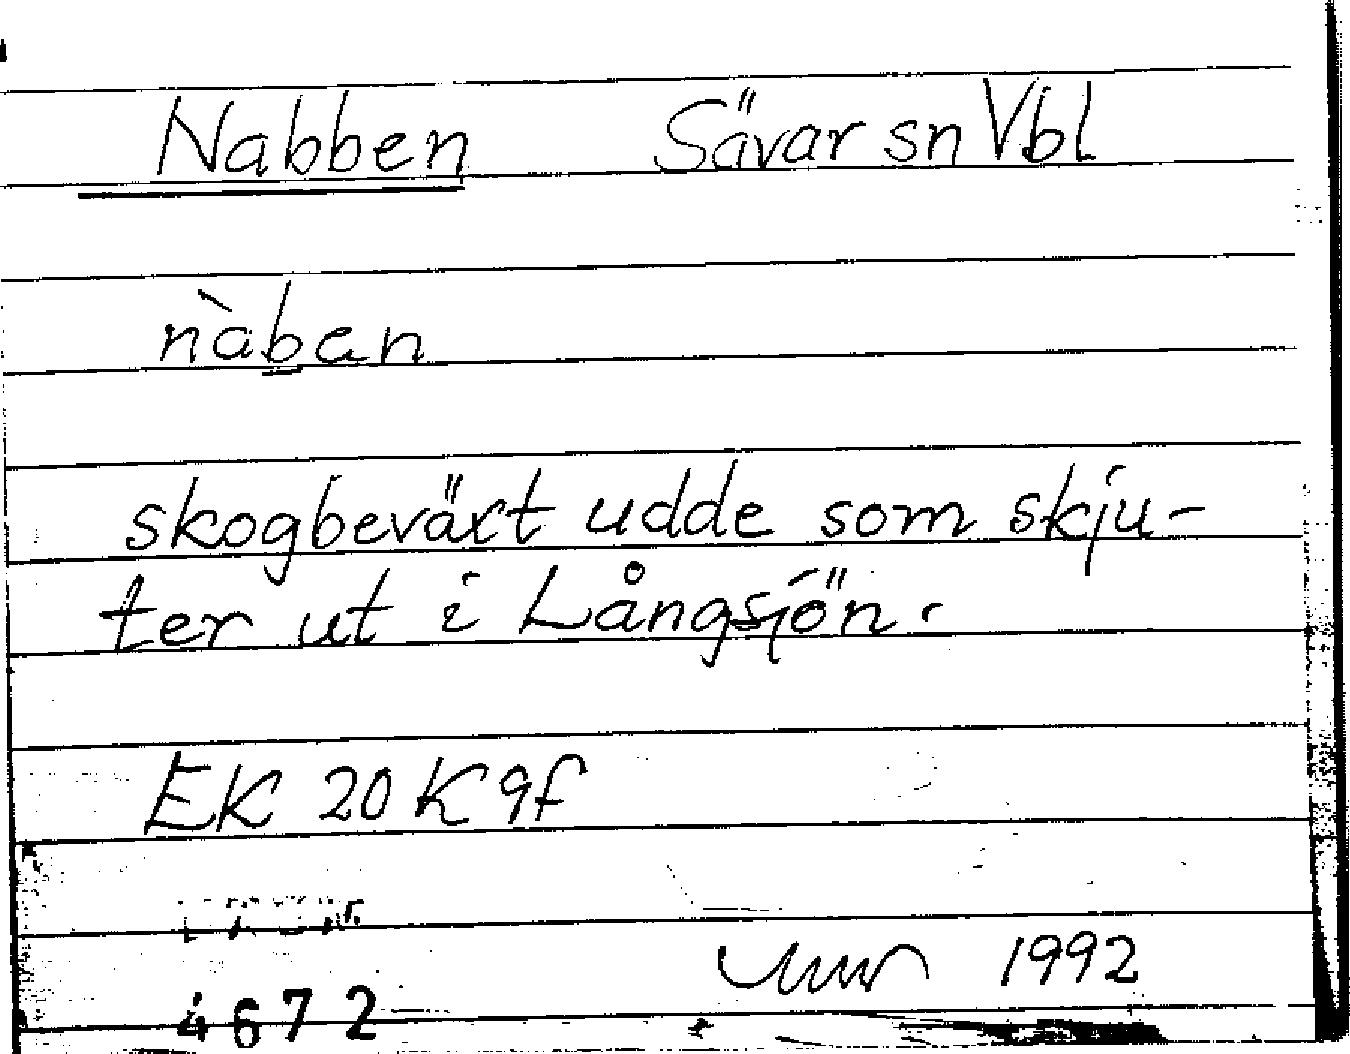 Nabben Sävar sn Vbl
nàb̲an
skogbeväxt udde som skju-
ter ut i Långsjön.
EK 20 K 9f
1992
4672